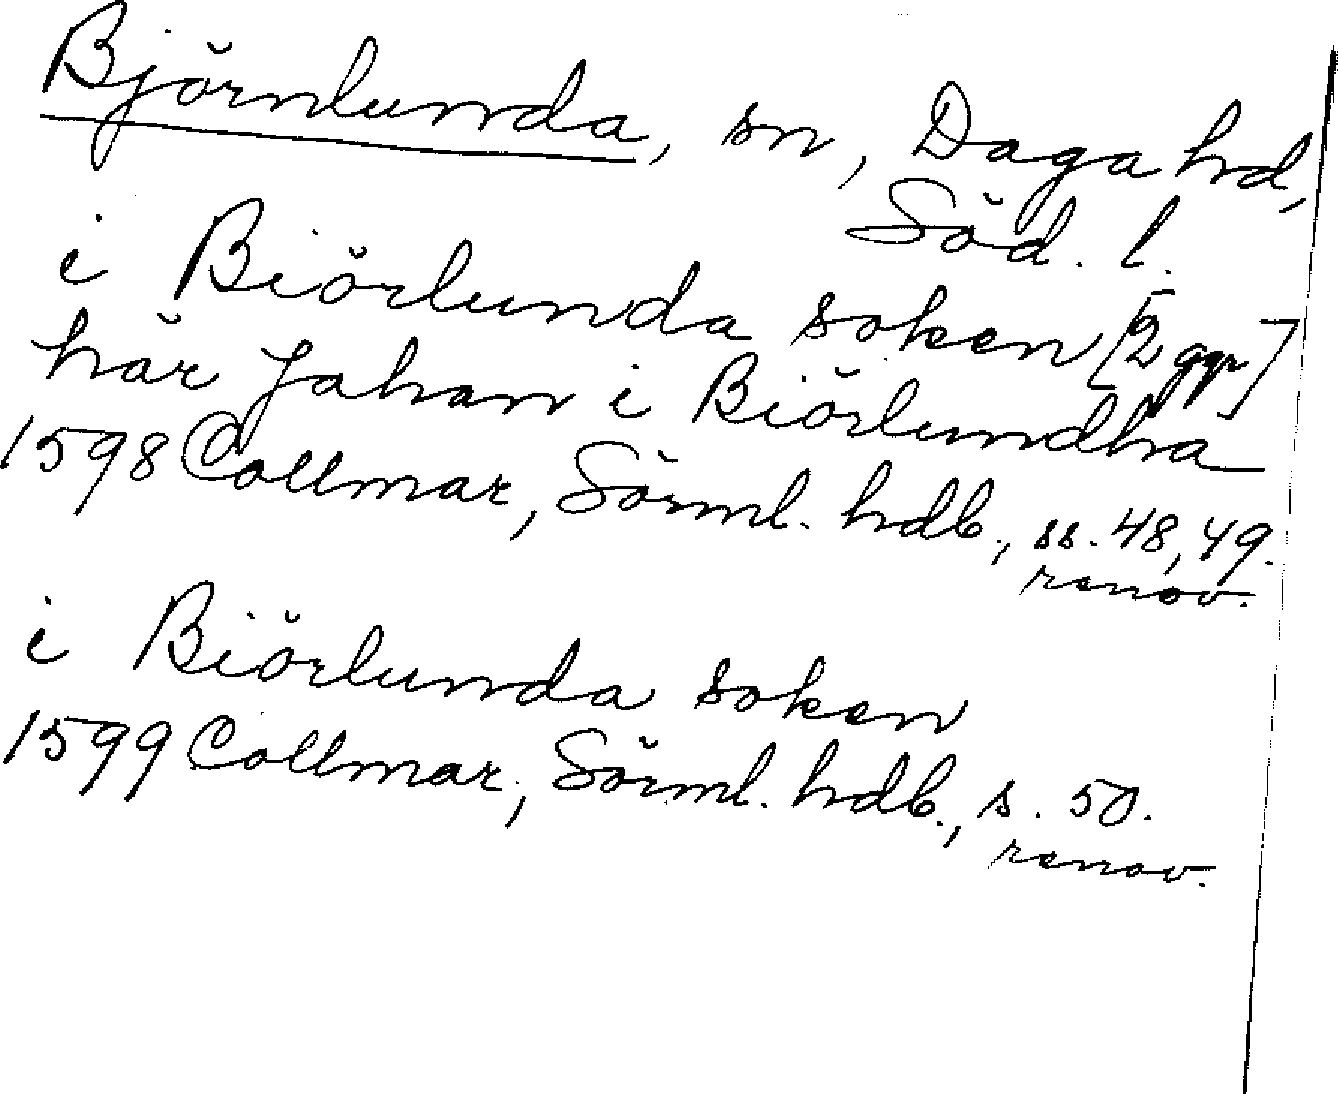 Björnlunda, sn, Daga hd,
Söd. l.
i Biörlunda soken [2 ggr]
här Johan i Biörlundha
1598 Collmar, Sörml. hdb., ss. 48, 49.
renov.
i Biörlunda soken
1599 Collmar, Sörml. hdb., s. 50.
renov.